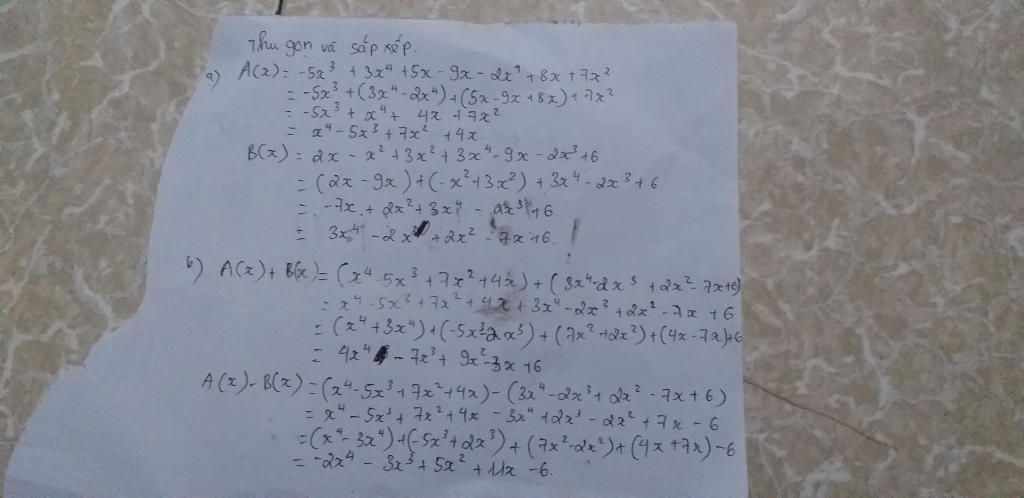 Thu gọn và sắp xếp.
a) A(x) = -5x³ + 3x⁴ + 5x - 9x - 2x⁴ + 8x + 7x²
= -5x³ + (3x⁴ - 2x⁴) + (5x - 9x + 8x) + 7x²
= -5x³ + x⁴ + 4x + 7x²
= x⁴ - 5x³ + 7x² + 4x.
B(x) = 2x - x² + 3x² + 3x⁴ - 9x - 2x³ + 6
= (2x - 9x) + (-x² + 3x²) + 3x⁴ - 2x³ + 6
= -7x + 2x² + 3x⁴ - 2x³ + 6
= 3x⁴ - 2x³ + 2x² - 7x + 6.
b) A(x) + B(x) = (x⁴ - 5x³ + 7x² + 4x) + (3x⁴ - 2x³ + 2x² - 7x + 6)
= x⁴ - 5x³ + 7x² + 4x + 3x⁴ - 2x³ + 2x² - 7x + 6
= (x⁴ + 3x⁴) + (-5x³ - 2x³) + (7x² + 2x²) + (4x - 7x) + 6
= 4x⁴ - 7x³ + 9x² - 3x + 6
A(x) - B(x) = (x⁴ - 5x³ + 7x² + 4x) - (3x⁴ - 2x³ + 2x² - 7x + 6)
= x⁴ - 5x³ + 7x² + 4x - 3x⁴ + 2x³ - 2x² + 7x - 6
= (x⁴ - 3x⁴) + (-5x³ + 2x³) + (7x² - 2x²) + (4x + 7x) - 6
= -2x⁴ - 3x³ + 5x² + 11x - 6.